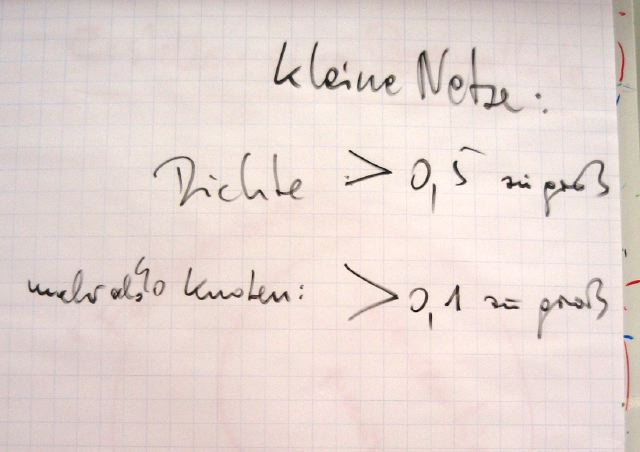 kleine Netze:
Dichte > 0,5 zu groß
mehr als 40 Knoten: > 0,1 zu groß